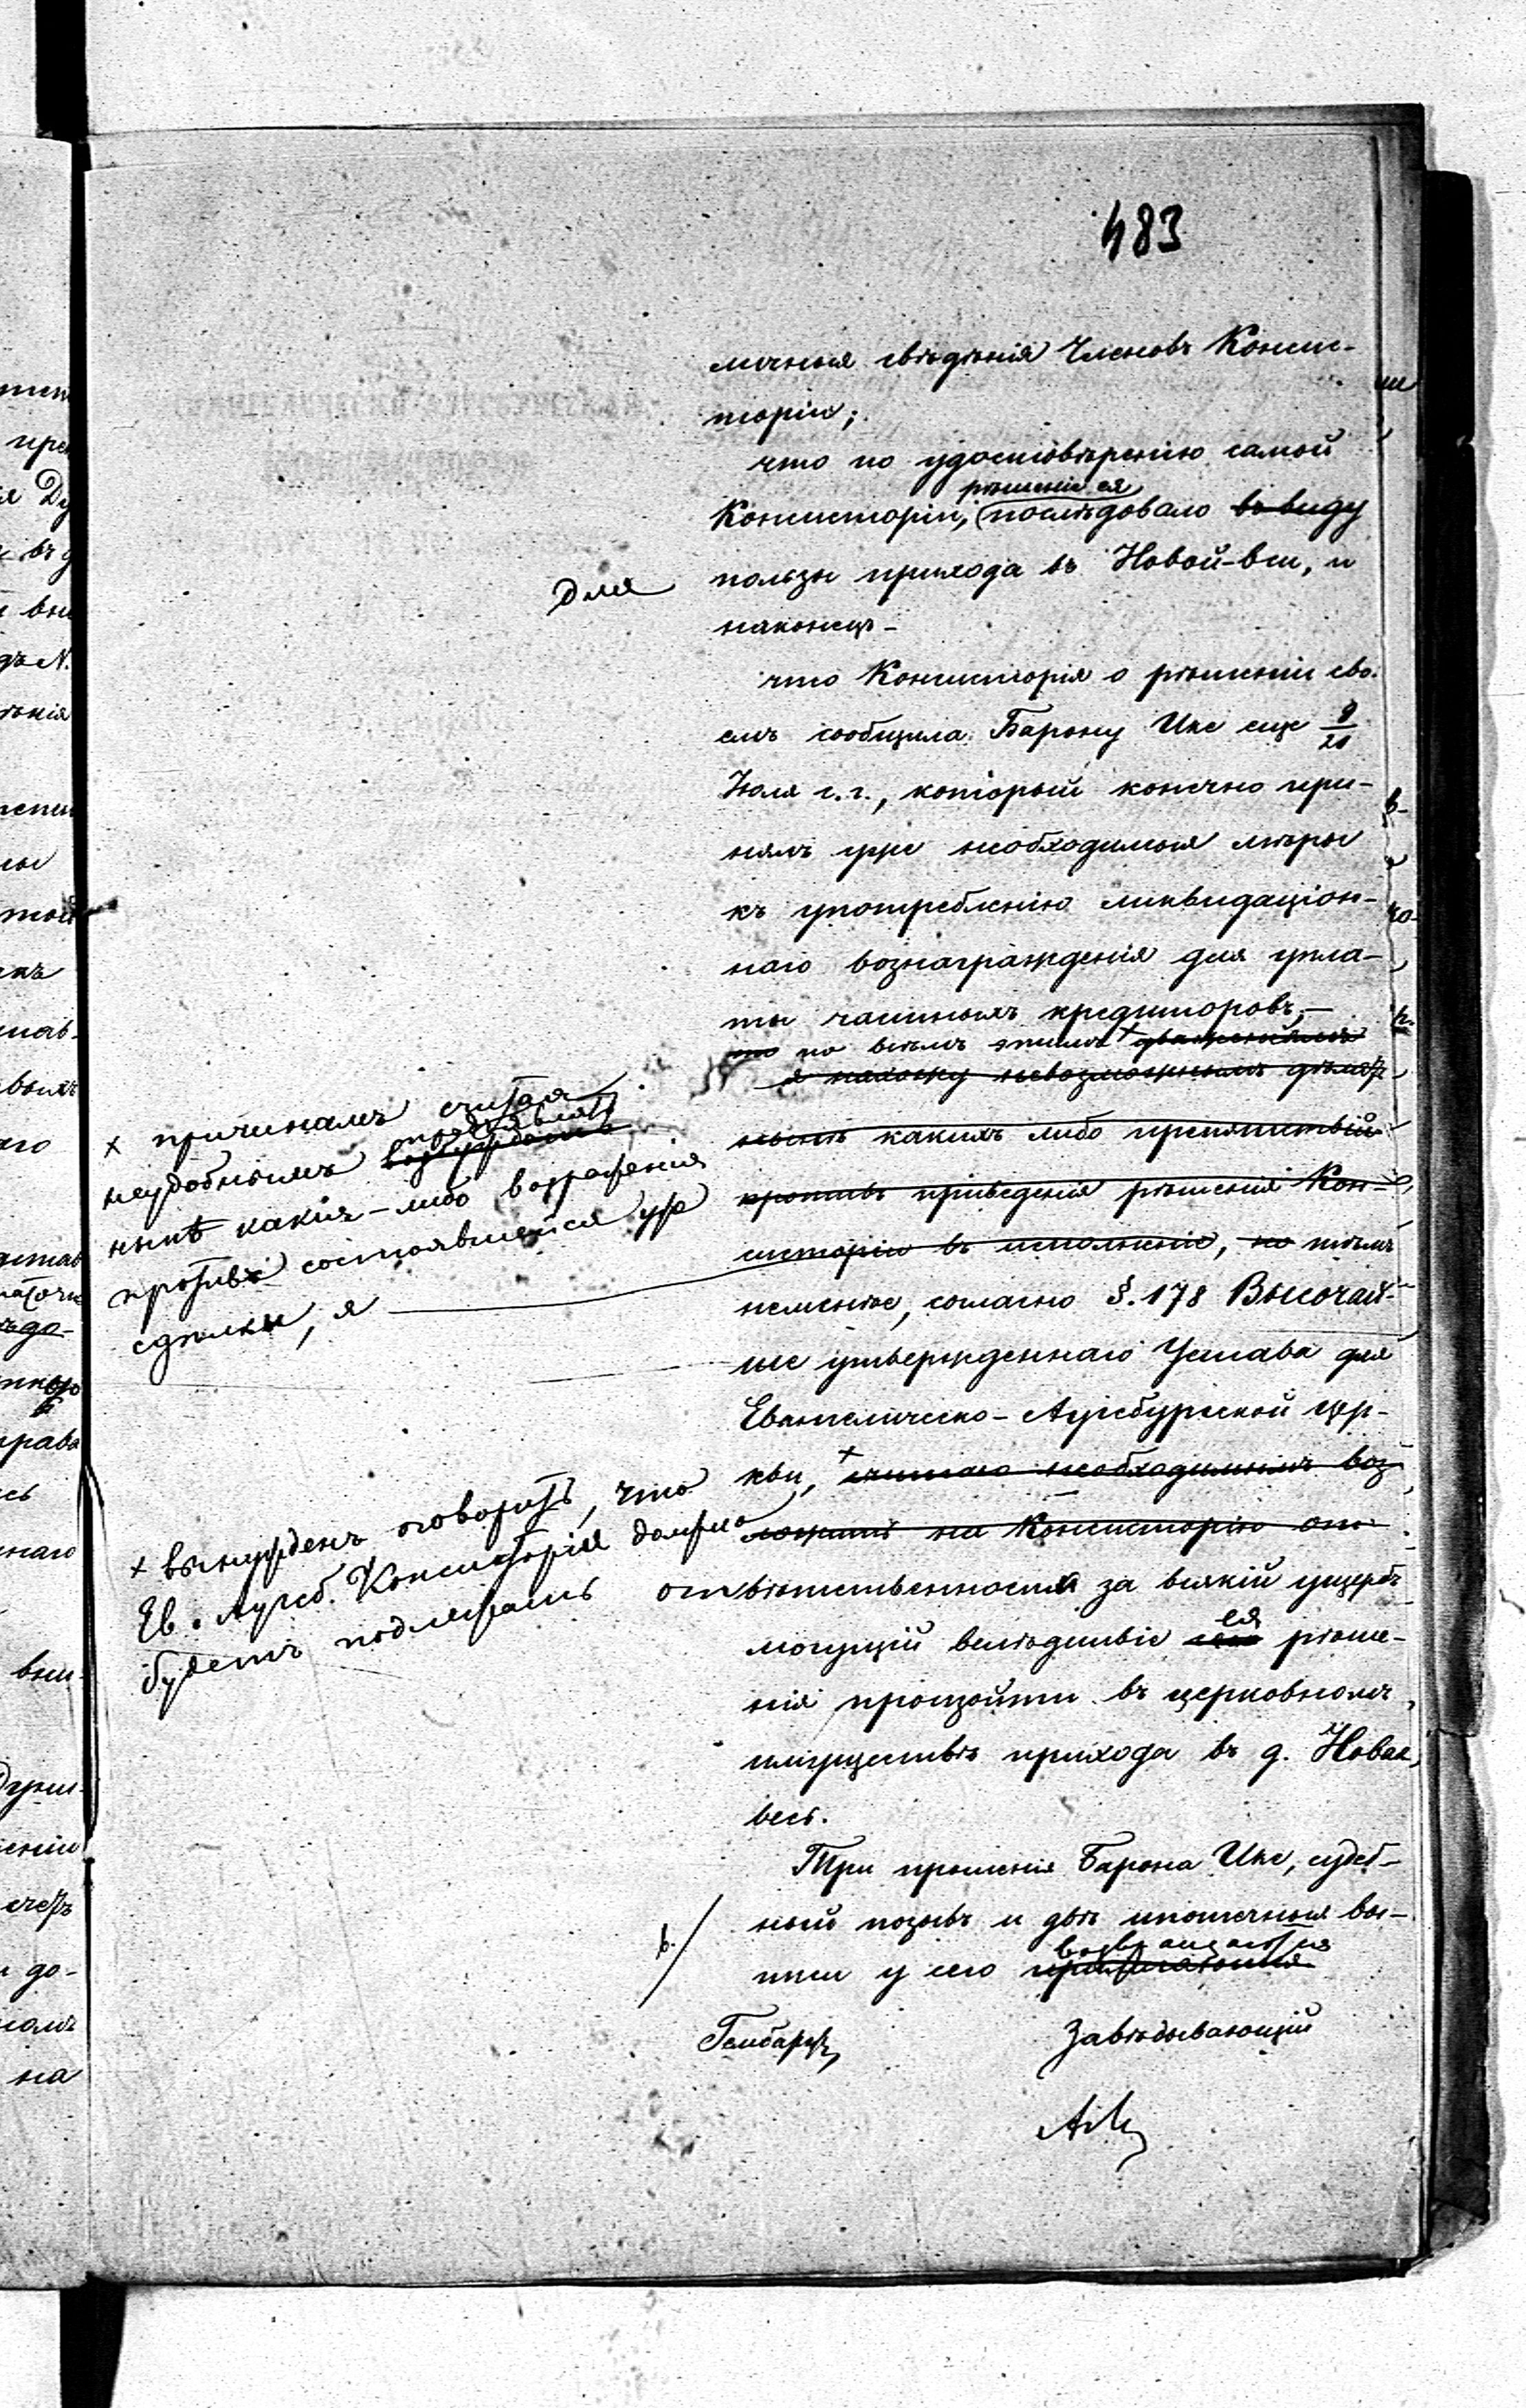 483
личныя свѣдѣнія Членовъ Консис-
торіи;
что по удостовѣренію самой
рѣшеніе ея
Консисторіи, послѣдовало въ виду
для пользы прихода въ Новой-вси, и
наконецъ -
что Консисторія о рѣшеніи сво-
емъ сообщила Барону Икс еще 9/21
Юля с.г., который конечно при-
нялъ уже необходимыя мѣры
къ употребленію ликвидаціон-
наго вознагражденія для упла-
ты частныхъ кредиторовъ, —
то по всѣмъ этимъ × уваженіямъ
я нахожу невозможнымъ дѣлать
нынѣ какихъ либо препятствій
противъ приведенія рѣшенія Кон-
систоріи въ исполненіе, но тѣмъ
не менѣе, согласно §. 178 Высочай-
ше утвержденнаго Устава для
Евангелическо-Аугсбургской цер-
кви, × считаю необходимымъ воз-
ложить на Консисторію от-
вѣтственности за всякій ущербъ
могущій вслѣдствіе ея рѣше-
нія произойти въ церковномъ
имуществѣ прихода въ д. Новая
весь.
Три прошенія Барона Икс, судеб-
ный позывъ и двѣ ипотечныя вы-
возвращаются
писи у сего прилагаются
Завѣдывающій
× причинамъ считая
предъявлять
неудобнымъ возбуждать
нынѣ какія-либо возраженія
противъ состоявшейся уже
сдѣлки, я
× вынужденъ оговорить, что
Ев. Аугсб. Консисторія должна
будетъ подлежать